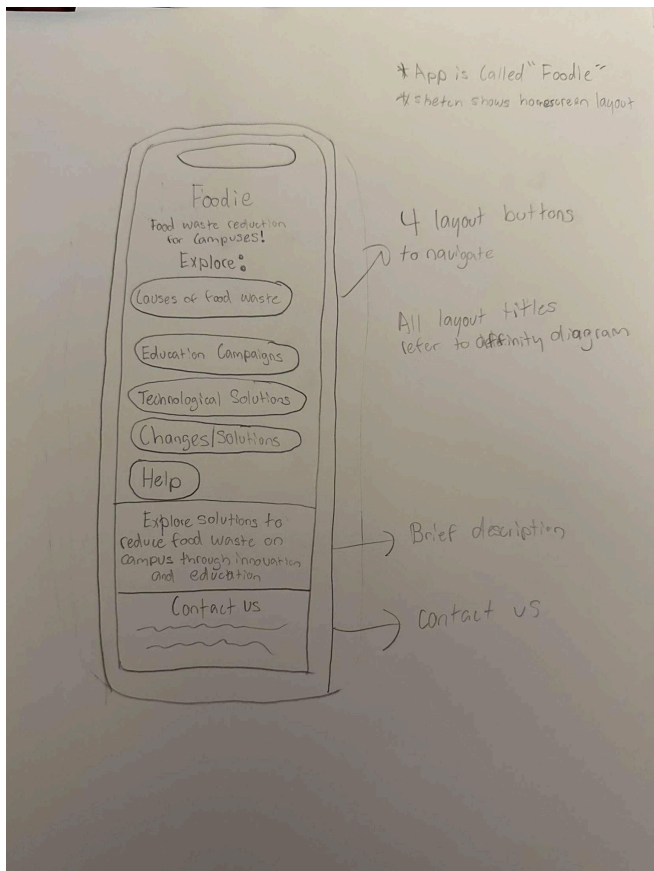 *App is called "Foodie"
*Sketch shows homescreen layout
Foodie
Food waste reduction
for campuses!
Explore:
Causes of food waste
Education Campaigns
Technological Solutions
Changes/Solutions
Help
Explore solutions to
reduce food waste on
campus through innovation
and education
Contact us
4 layout buttons
to navigate
All layout titles
refer to affinity diagram
Brief description
Contact us